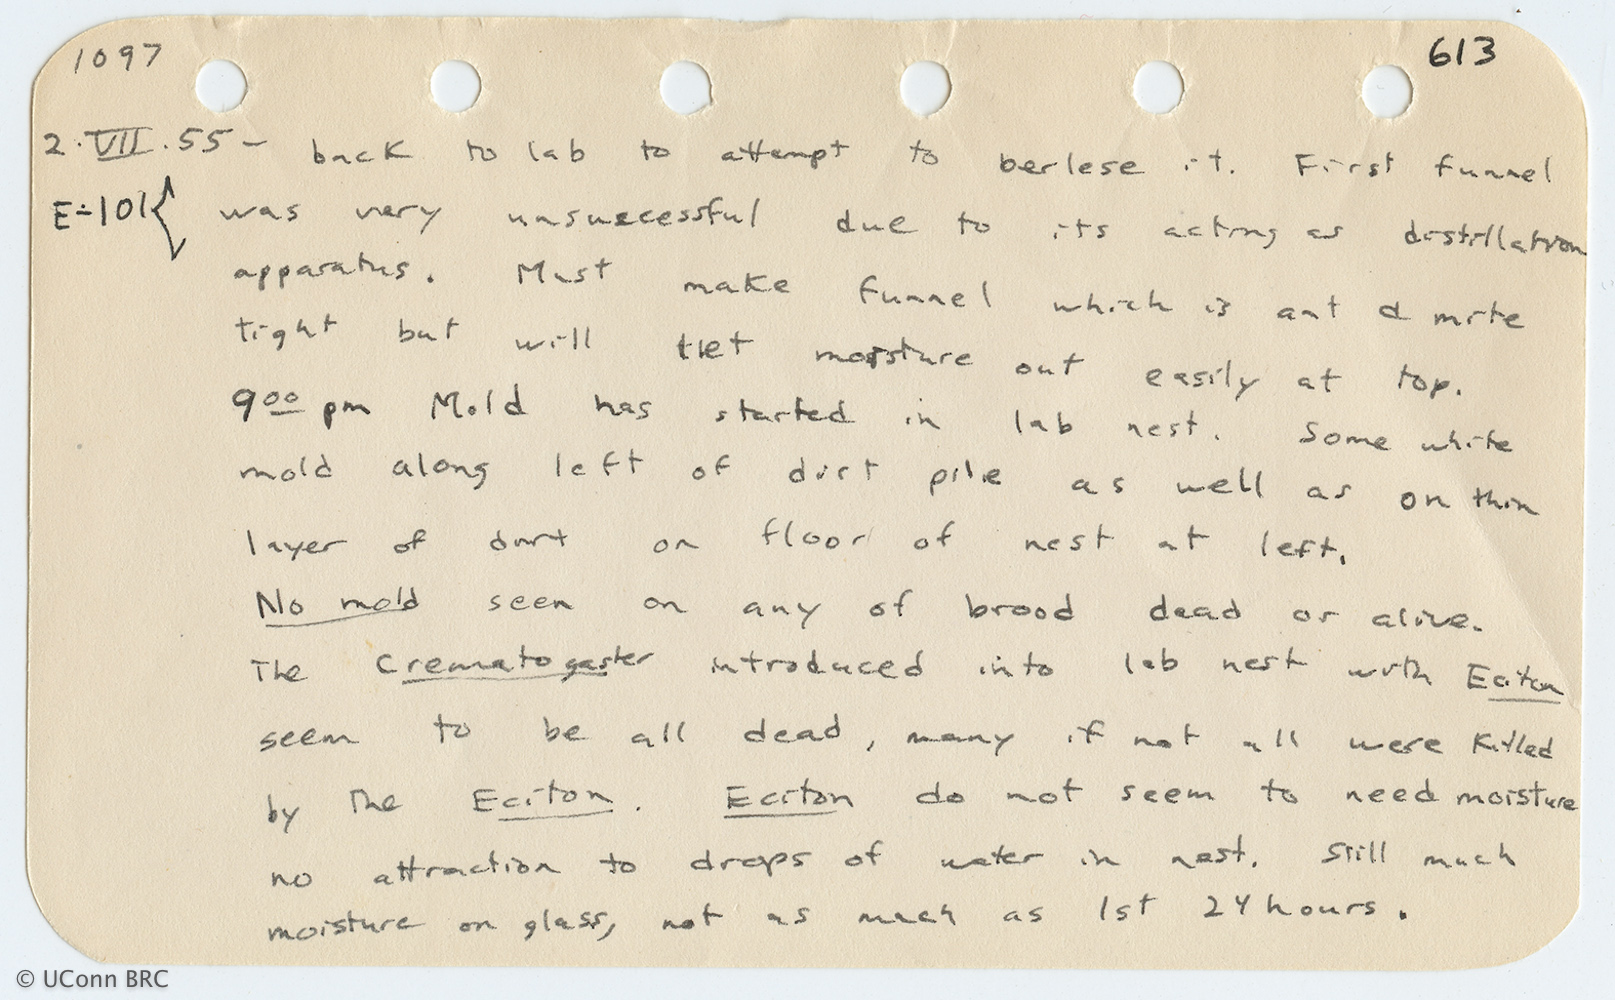 1097 613
2.VII.55 - back to lab to attempt to berlese it. First funnel
E-101{ was very unsuccessful due to its acting as distillation
apparatus. Must make funnel which is ant & mite
tight but will let moisture out easily at top.
9⁰⁰ pm Mold has started in lab nest. Some white
mold along left of dirt pile as well as on thin
layer of dirt on floor of nest at left.
No mold seen on any of brood dead or alive.
The Crematogaster introduced into lab nest with Eciton
seem to be all dead, many if not all were killed
by the Eciton. Eciton do not seem to need moisture
no attraction to drops of water in nest. Still much
moisture on glass, not as much as 1st 24 hours.
© UConn BRC